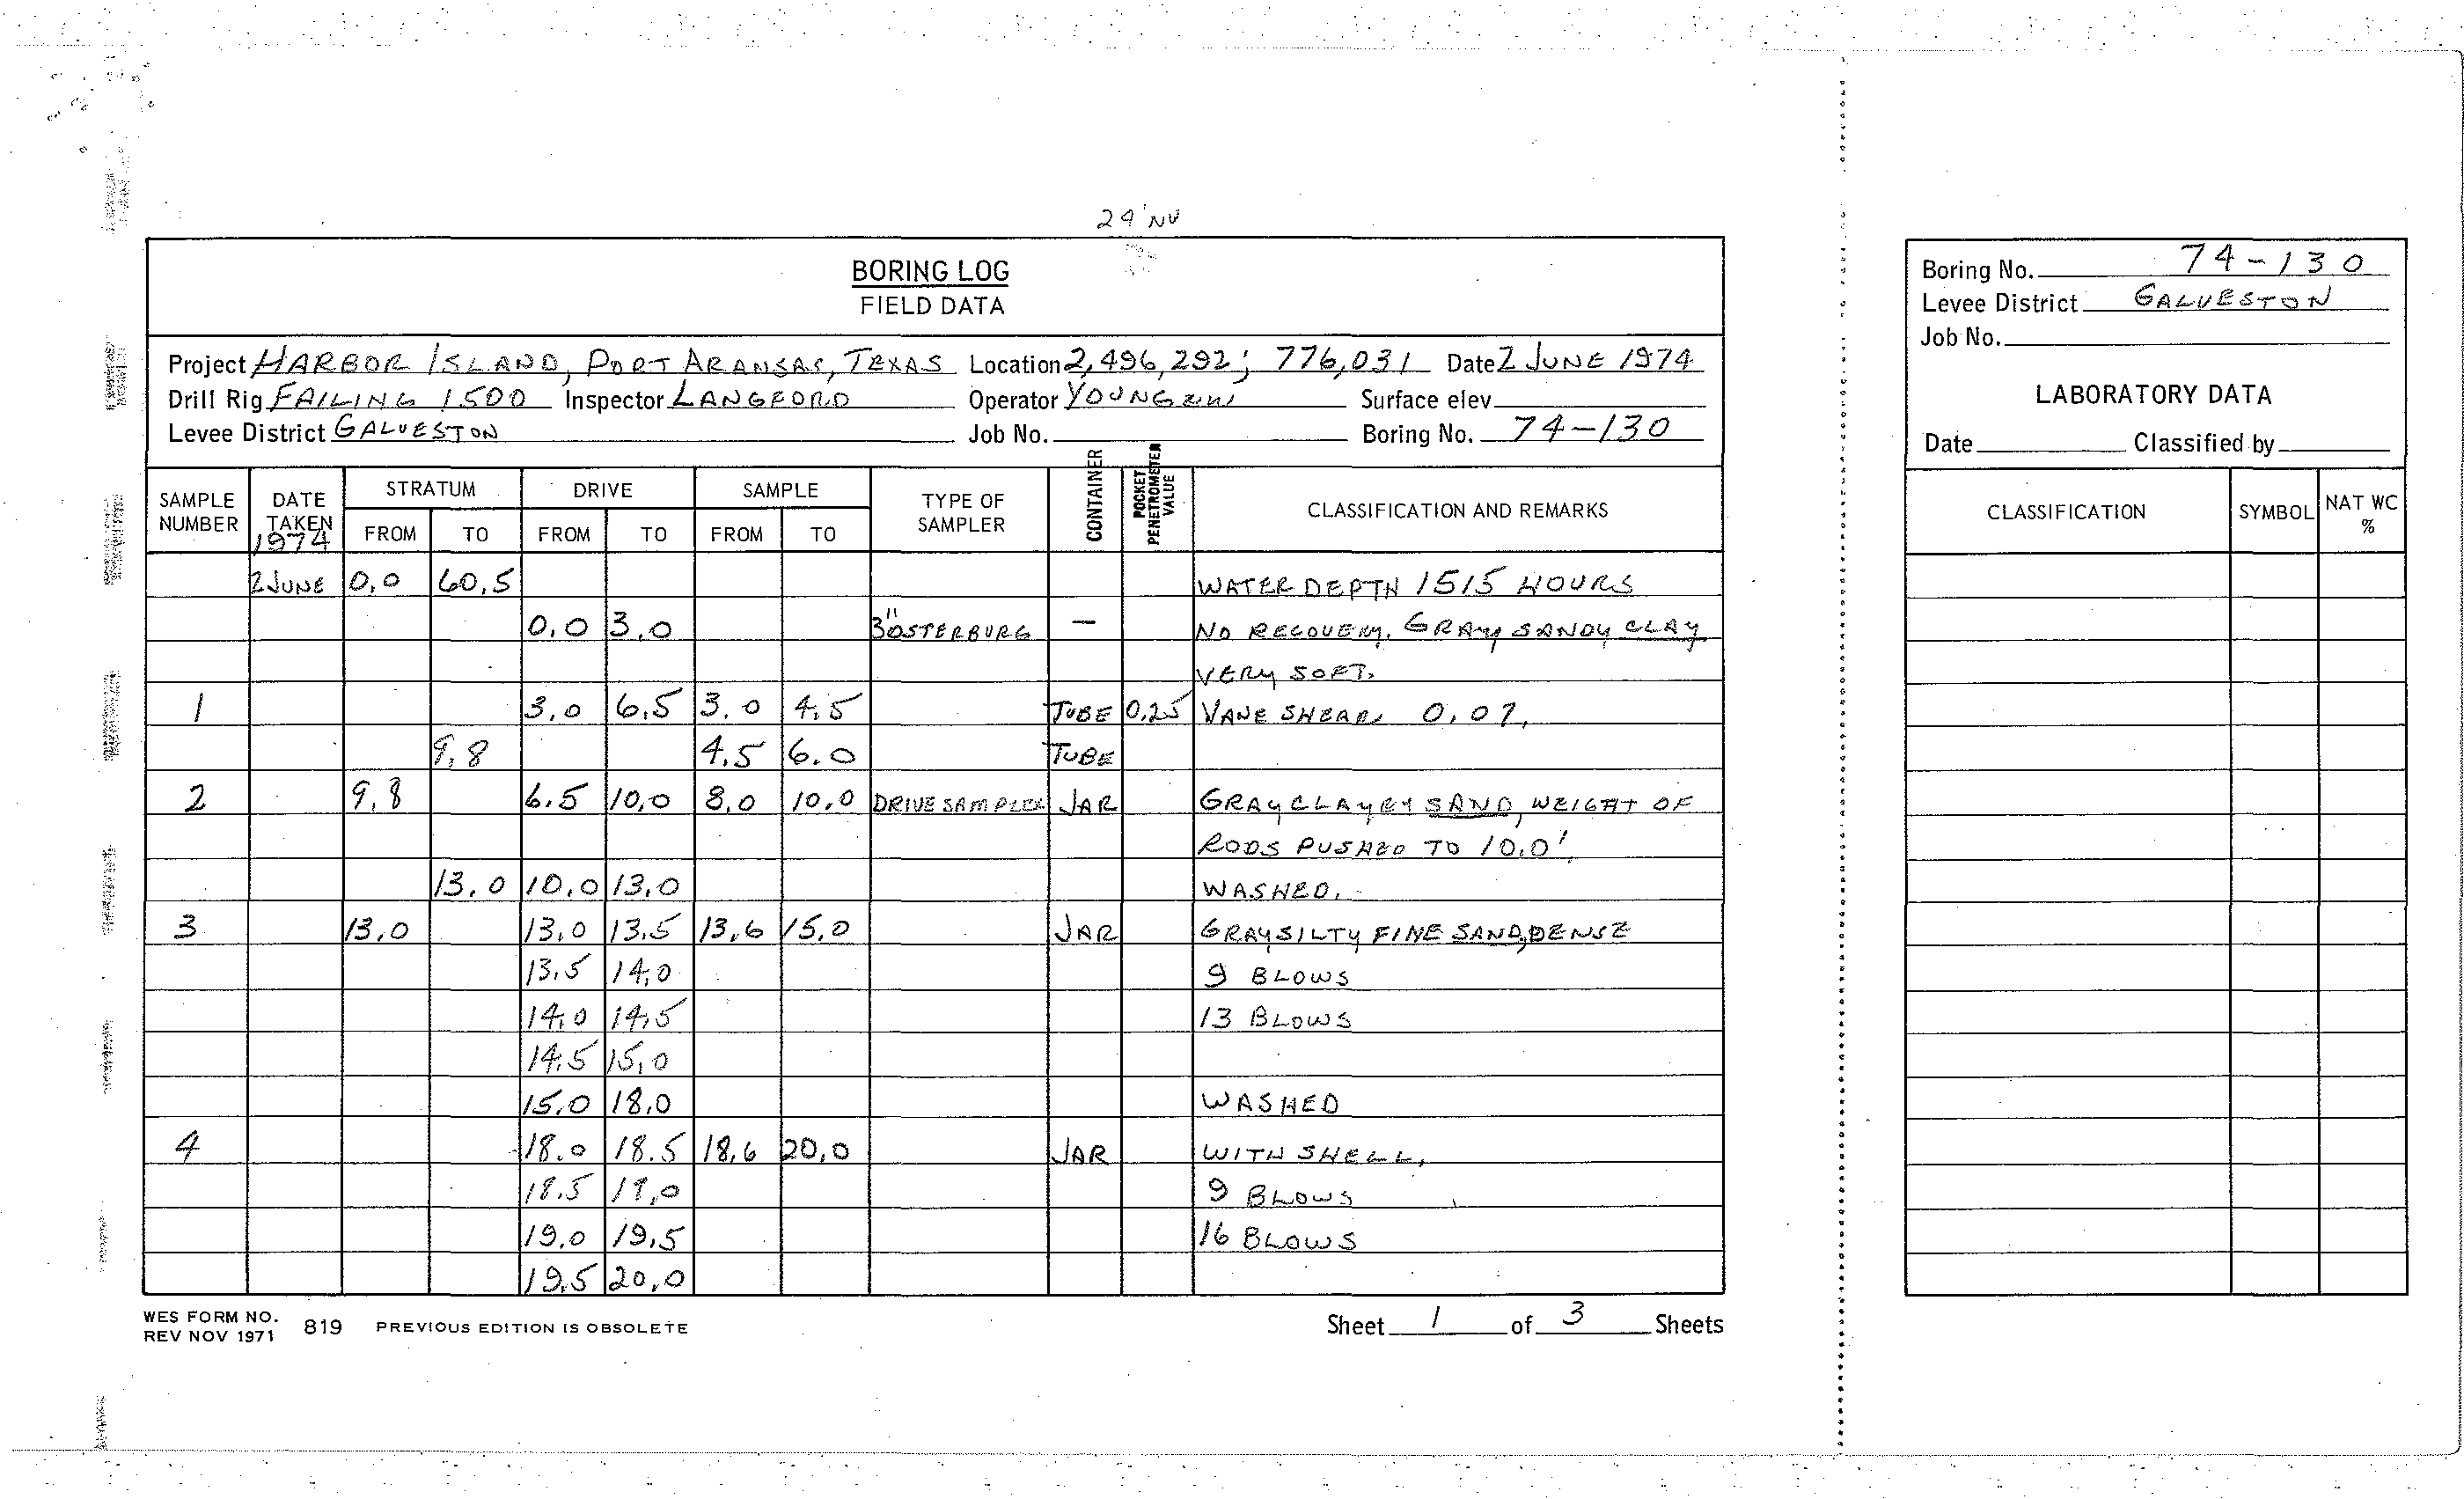 24' NV
BORING LOG
FIELD DATA
Project HARBOR ISLAND, PORT ARANSAS, TEXAS Location 2,496,292; 776,031 Date 2 JUNE 1974
Drill Rig FAILING 1500 Inspector LANGFORD Operator Surface elev.
Levee District GALVESTON Job No. Boring No. 74-130
SAMPLE NUMBER DATE TAKEN 1974 STRATUM FROM TO DRIVE FROM TO SAMPLE FROM TO TYPE OF SAMPLER CONTAINER POCKET PENETROMETER VALUE CLASSIFICATION AND REMARKS
2 JUNE 0.0 60.5 WATER DEPTH 1515 HOURS
0.0 3.0 3" OSTERBURG — NO RECOVERY. GRAY SANDY CLAY
VERY SOFT.
1 3.0 6.5 3.0 4.5 TUBE 0.25 VANE SHEAR, 0.07,
9.8 4.5 6.0 TUBE
2 9.8 6.5 10.0 8.0 10.0 DRIVE SAMPLER JAR GRAY CLAYEY SAND, WEIGHT OF
RODS PUSHED TO 10.0'.
13.0 10.0 13.0 WASHED.
3 13.0 13.0 13.5 13.6 15.0 JAR GRAY SILTY FINE SAND, DENSE
13.5 14.0 9 BLOWS
14.0 14.5 13 BLOWS
14.5 15.0
15.0 18.0 WASHED
4 18.0 18.5 18.6 20.0 JAR WITH SHELL,
18.5 19.0 9 BLOWS
19.0 19.5 16 BLOWS
19.5 20.0
WES FORM NO. 819 PREVIOUS EDITION IS OBSOLETE
REV NOV 1971
Sheet 1 of 3 Sheets
Boring No. 74-130
Levee District GALVESTON
Job No.
LABORATORY DATA
Date Classified by
CLASSIFICATION SYMBOL NAT WC %